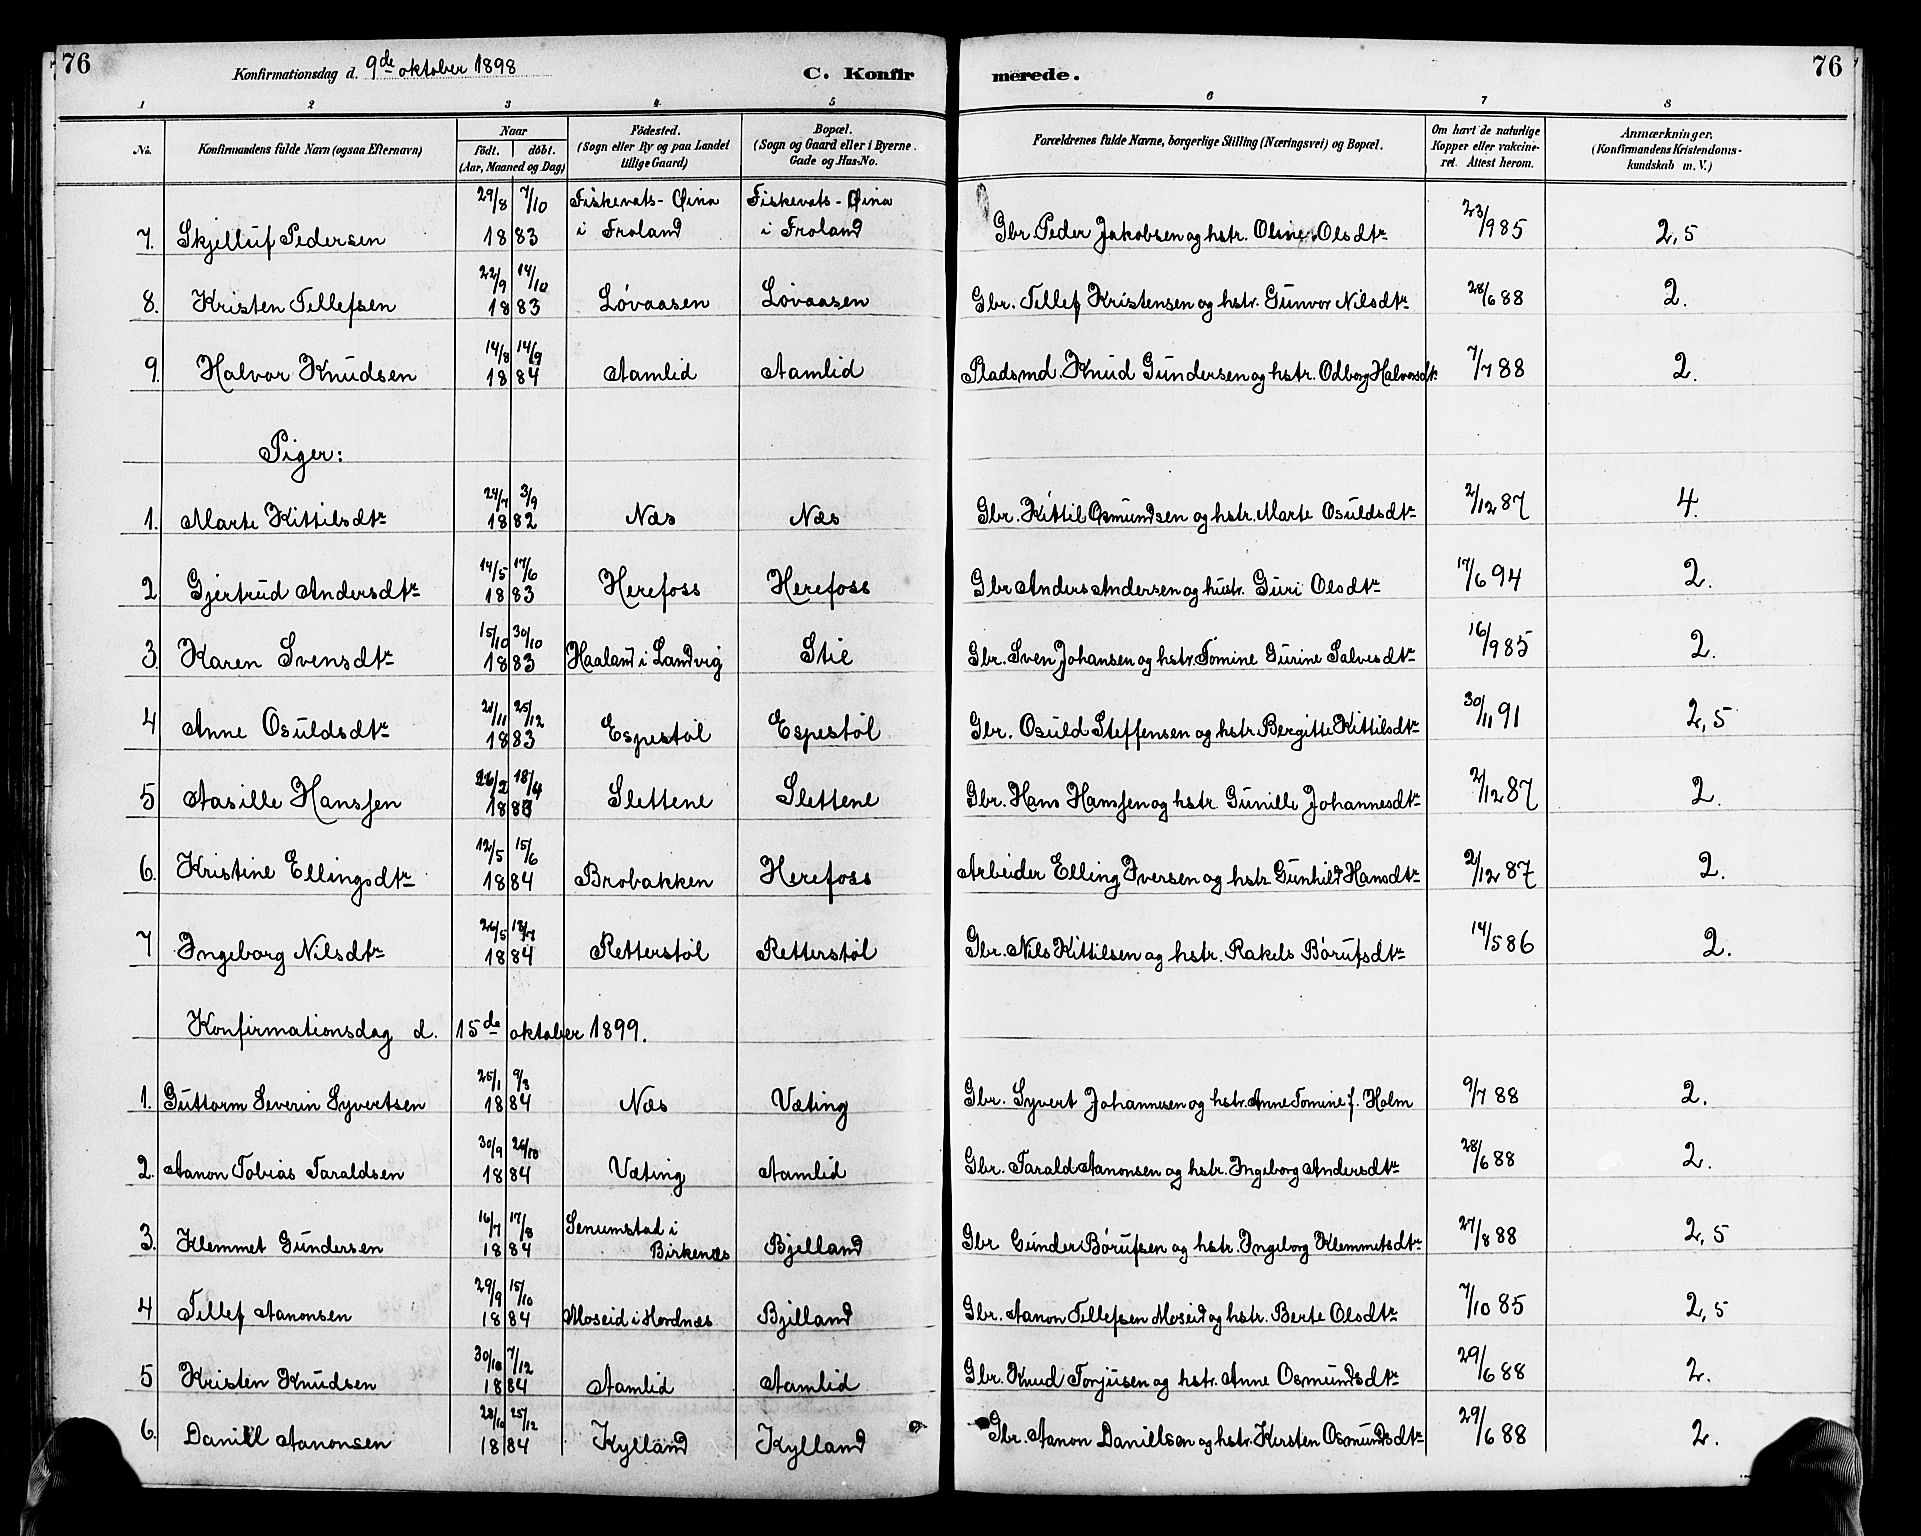 76
Konfirmationsdag d. 9de oktober 1898
C. Konfirmerede.
76
1 2 3 4 5 6 7 8
No.
Konfirmandens fulde Navn (ogsaa Efternavn)
Naar
født. døbt.
(Aar, Maaned og Dag)
Fødested.
(Sogn eller By og paa Landet
tillige Gaard)
Bopæl.
(Sogn og Gaard eller i Byerne.
Gade og Hus-No.
Forældrenes fulde Navne, borgerlige Stilling (Næringsvei) og Bopæl.
Om havt de naturlige
Kopper eller vakcine-
ret. Attest herom.
Anmærkninger.
(Konfirmandens Kristendoms-
kundskab m. V.)
7. Skjelluf Pedersen 29/8 7/10 1883 Fiskevats-Øina i Froland Fiskevats-Øina i Froland Gbr Peder Jakobsen og hstr. Oline Olsdtr 23/9 85 2,5
8. Kristen Tellefsen 22/9 14/10 1883 Løvaasen Løvaasen Gbr. Tellef Kristensen og hstr. Gunvor Nilsdtr 28/6 88 2.
9. Halvor Knudsen 14/8 14/9 1884 Aamlid Aamlid Pladsmd. Knud Gundersen og hstr. Odborg Halvorsdtr 7/7 88 2.
Piger:
1. Marte Kittilsdtr 24/7 3/9 1882 Næs Næs Gbr. Kittil Osmundsen og hstr. Marte Osuldsdtr 2/12 87 4.
2 Gjertrud Andersdtr 14/5 17/6 1883 Herefoss Herefoss Gbr Anders Andersen og hustr. Guri Olsdtr 17/6 94 2.
3. Karen Svensdtr 15/10 30/10 1883 Haaland i Landvig Stie Gbr. Sven Johansen og hstr. Tomine Gurine Salvesdtr 16/9 85 2.
4 Anne Osuldsdtr 21/11 25/12 1883 Espestøl Espestøl Gbr. Osuld Steffensen og hstr. Bergitte Kittilsdtr 30/11 91 2,5
5 Aasille Hanssen 26/2 18/4 1883 Slettene Slettene Gbr. Hans Hanssen og hstr Gunille Johannesdtr 2/12 87 2.
6. Kristine Ellingsdtr 12/5 15/6 1884 Brobakken Herefoss Arbeider Elling Iversen og hstr Gunhild Hansdtr 2/12 87 2.
7 Ingeborg Nilsdtr 26/5 13/7 1884 Retterstøl Retterstøl Gbr. Nils Kittilsen og hstr. Rakels Børufsdtr 14/5 86 2.
Konfirmationsdag d. 15de oktober 1899.
1. Guttorm Severin Syvertsen 25/1 9/3 1884 Næs Væting Gbr. Syvert Johannesen og hstr. Anne Tomine f. Holm 9/7 88 2.
2. Aanon Tobias Taraldsen 30/9 26/10 1884 Væting Aamlid Gbr. Tarald Aanonsen og hstr. Ingeborg Andersdtr 28/6 88 2.
3. Klemmet Gundersen 16/7 17/8 1884 Senumstad i Birkenæs Bjelland Gbr Gunder Børufsen og hstr. Ingeborg Klemmetsdtr 27/8 88 2,5
4 Tellef Aanonsen 29/9 15/10 1884 Moseid i Hordnæs Bjelland Gbr. Aanon Tellefsen Moseid og hstr. Berte Olsdtr 7/10 85 2,5
5 Kristen Knudsen 30/10 7/12 1884 Aamlid Aamlid Gbr. Knud Torjusen og hstr. Anne Osmundsdtr 29/6 88 2.
6. Daniell Aanonsen 28/10 25/12 1884 Kylland Kylland Gbr. Aanon Daniellsen og hstr. Kersten Osmundsdtr 29/6 88 2.